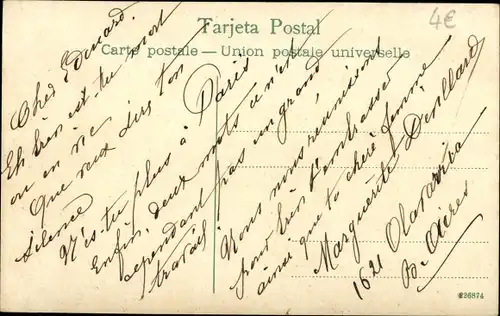 Tarjeta Postal
Carte postale — Union postale universelle
4€
Cher Edouard.
Eh bien est-tu mort
ou en vie
Que veux dire ton
silence
N'es-tu plus à Paris
Enfin, deux mots ce n'en
cependant pas un grand
travail
Nous nous réunissont
pour bien t'embrasser
ainsi que ta chère femme
Marguerite
1621 Olavarria
Bs. Aires
226874